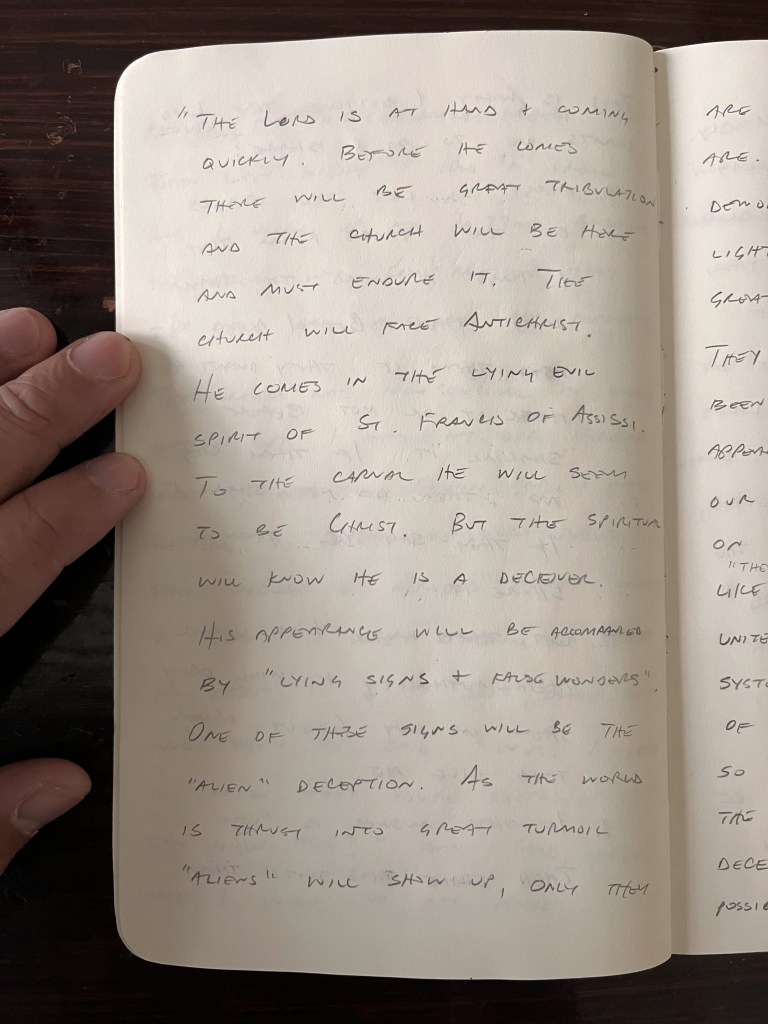 "THE LORD IS AT HAND + COMING
QUICKLY. BEFORE HE COMES
THERE WILL BE GREAT TRIBULATION
AND THE CHURCH WILL BE HERE
AND MUST ENDURE IT. THE
CHURCH WILL FACE ANTICHRIST.
HE COMES IN THE LYING EVIL
SPIRIT OF ST. FRANCIS OF ASSISSI.
TO THE CARNAL HE WILL SEEM
TO BE CHRIST. BUT THE SPIRITUA
WILL KNOW HE IS A DECEIVER.
HIS APPEARANCE WILL BE ACCOMPANIED
BY "LYING SIGNS + FALSE WONDERS".
ONE OF THESE SIGNS WILL BE THE
"ALIEN" DECEPTION. AS THE WORLD
IS THRUST INTO GREAT TURMOIL
"ALIENS" WILL SHOW UP, ONLY THEY
ARE
ARE.
DEMO
LIGHT
GREAT
THEY
BEEN
APPEA
OUR
ON
"THE
LIKE
UNITE
SYSTE
OF
SO
THE
DECE
POSSIB